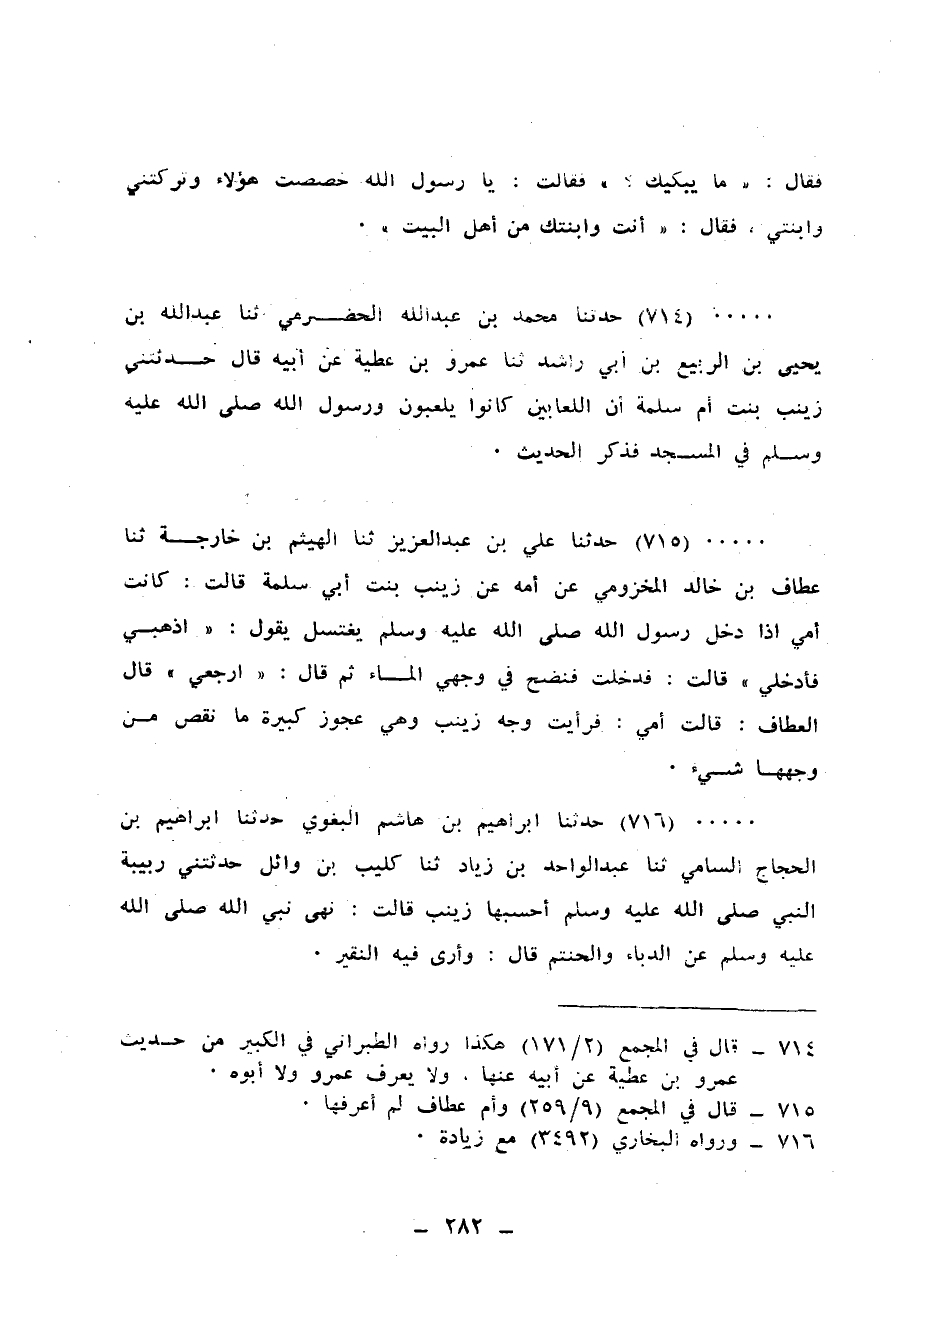 فقال : « ما يبكيك ؟ » فقالت : يا رسول الله خصصت هؤلاء وتركتني
وابنتي ، فقال : « أنت وابنتك من أهل البيت » ٠
٠٠٠٠٠ (٧١٤) حدثنا محمد بن عبدالله الحضرمي ثنا عبدالله بن
يحيى بن الربيع بن أبي راشد ثنا عمرو بن عطية عن أبيه قال حدثتني
زينب بنت أم سلمة أن اللعابين كانوا يلعبون ورسول الله صلى الله عليه
وسلم في المسجد فذكر الحديث ٠
٠٠٠٠٠ (٧١٥) حدثنا علي بن عبدالعزيز ثنا الهيثم بن خارجة ثنا
عطاف بن خالد المخزومي عن أمه عن زينب بنت أبي سلمة قالت : كانت
أمي اذا دخل رسول الله صلى الله عليه وسلم يغتسل يقول : « اذهبي
فأدخلي » قالت : فدخلت فنضح في وجهي الماء ثم قال : « ارجعي » قال
العطاف : قالت أمي : فرأيت وجه زينب وهي عجوز كبيرة ما نقص من
وجهها شيء ٠
٠٠٠٠٠ (٧١٦) حدثنا ابراهيم بن هاشم البغوي حدثنا ابراهيم بن
الحجاج السامي ثنا عبدالواحد بن زياد ثنا كليب بن وائل حدثتني ربيبة
النبي صلى الله عليه وسلم أحسبها زينب قالت : نهى نبي الله صلى الله
عليه وسلم عن الدباء والحنتم قال : وأرى فيه النقير ٠
٧١٤ ــ قال في المجمع (١٧١/٢) هكذا رواه الطبراني في الكبير من حديث
عمرو بن عطية عن أبيه عنها ، ولا يعرف عمرو ولا أبوه ٠
٧١٥ ــ قال في المجمع (٢٥٩/٩) وأم عطاف لم أعرفها ٠
٧١٦ ــ ورواه البخاري (٣٤٩٢) مع زيادة ٠
ــ ٢٨٢ ــ